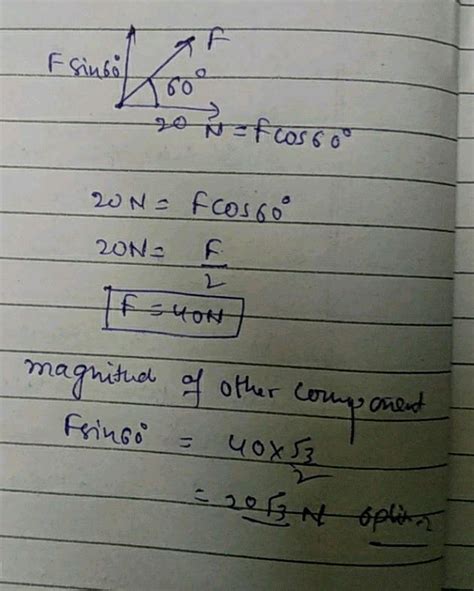 F
Fsin60°
60°
20 N = Fcos60°
20N = Fcos60°
20N = F/2
F = 40N
magnitud of other component
Fsin60° = 40×√3/2
= 20√3 N